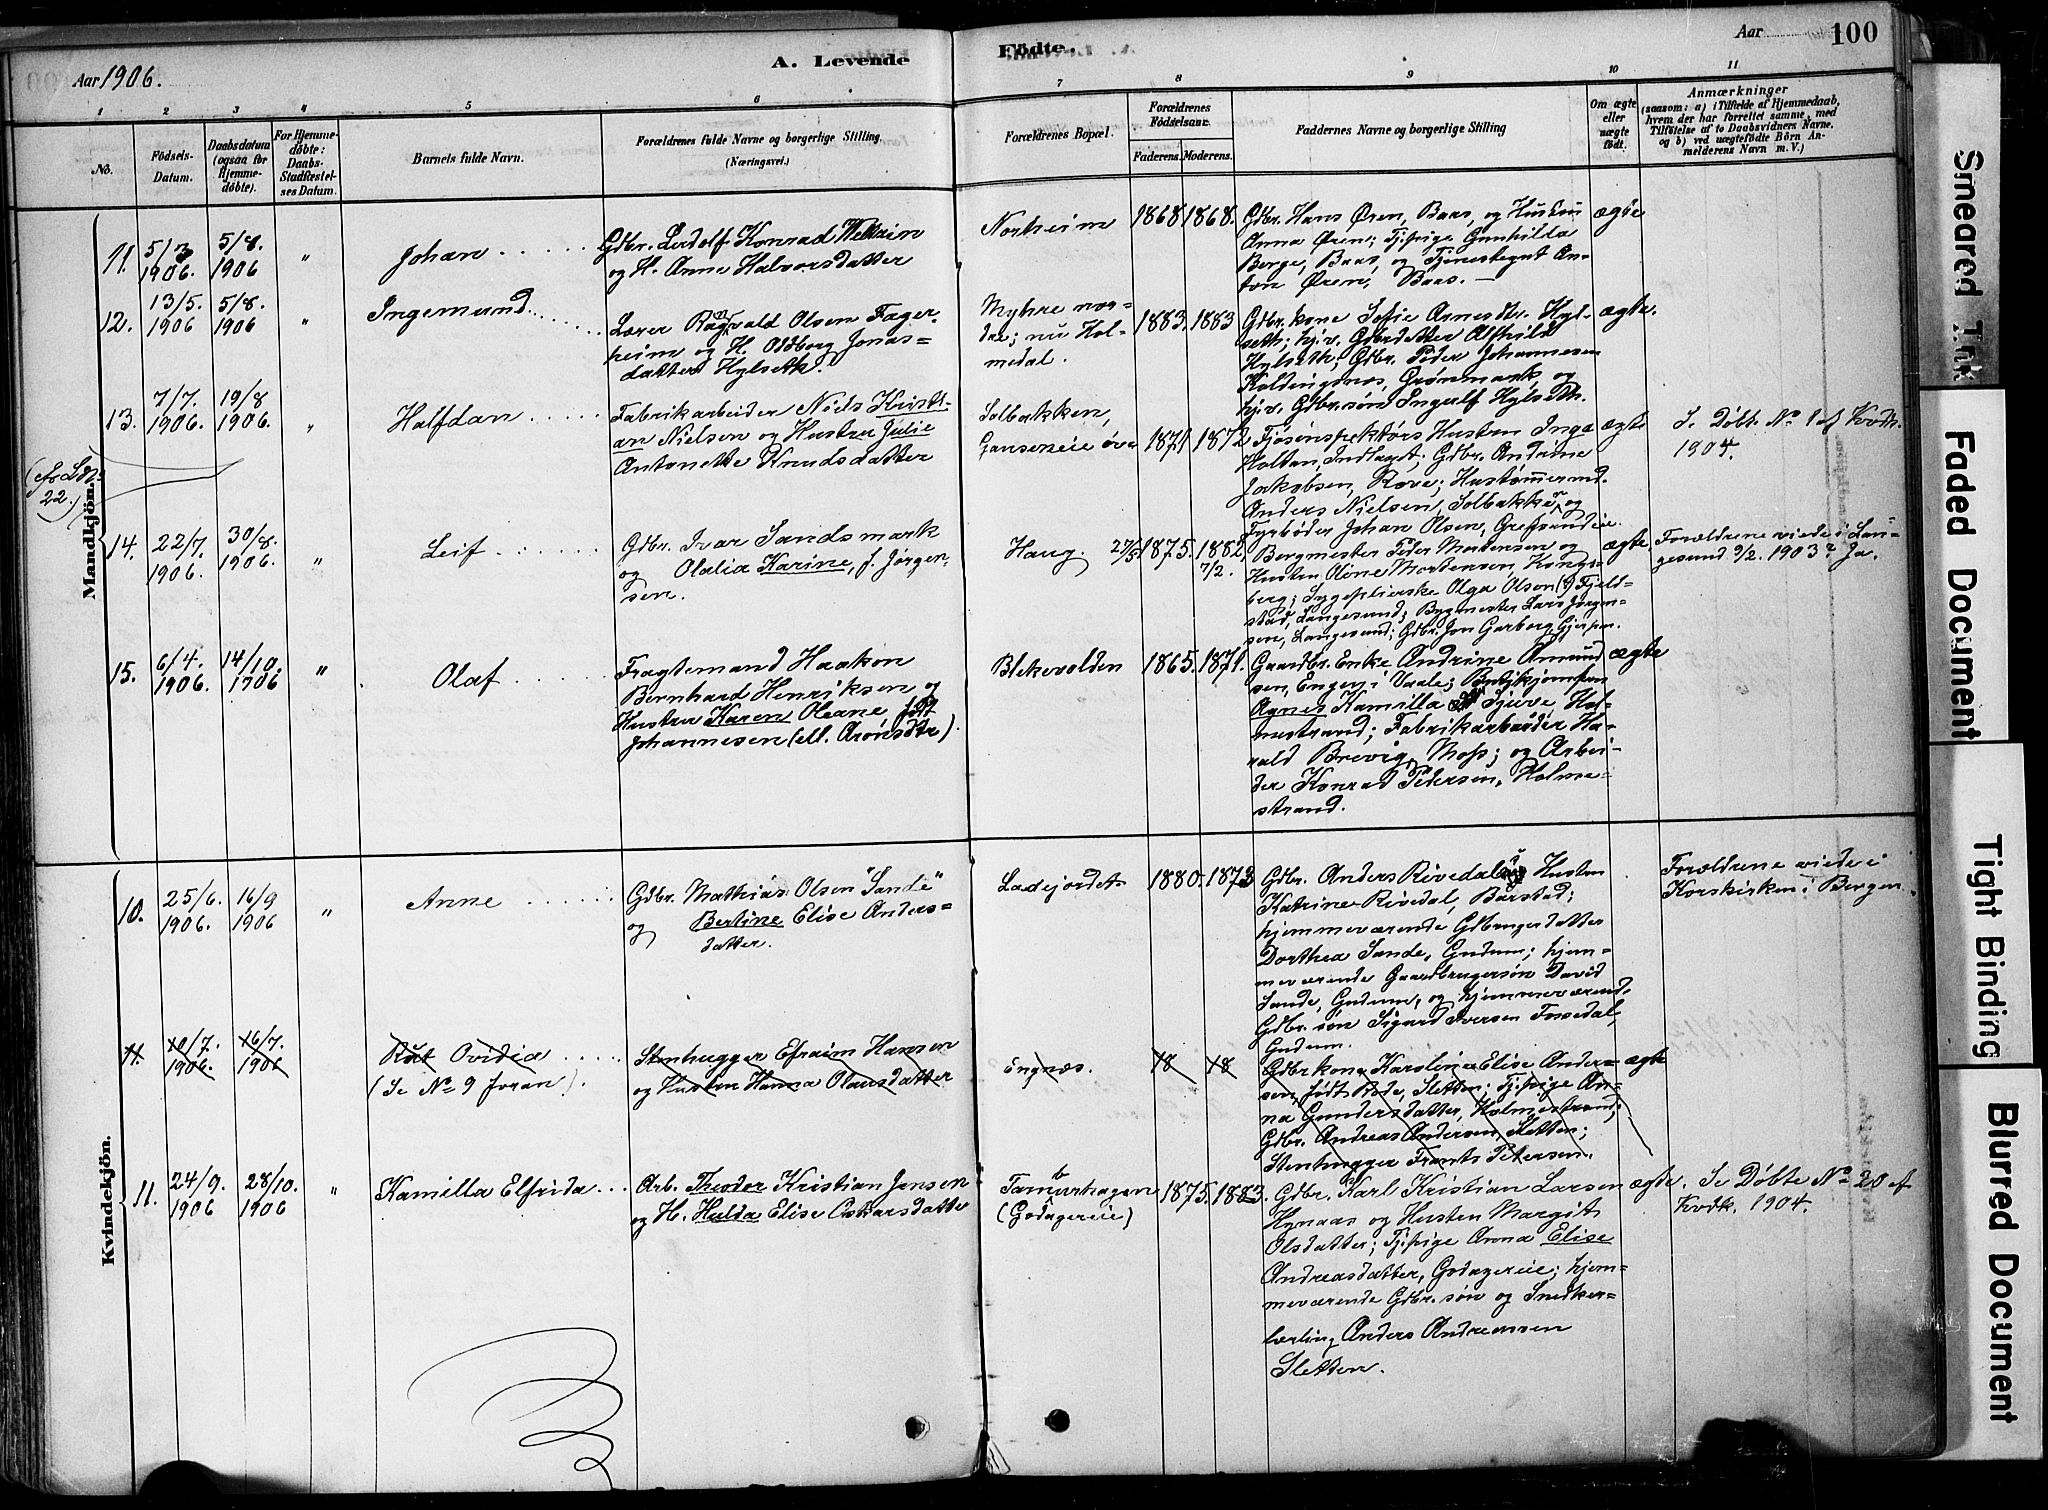 Aar 1906.
A. Levende Födte.
Aar
100
1
2
3
4
5
6
7
8
9
10
11
No.
Födsels-Datum.
Daabsdatum (ogsaa for Hjemmedöbte).
For Hjemmedöbte: Daabs-Stadfæstelses Datum.
Barnets fulde Navn.
Forældrenes fulde Navne og borgerlige Stilling. (Næringsvei.)
Forældrenes Bopæl.
Forældrenes Födselsaar.
Faderens. Moderens.
Faddernes Navne og borgerlige Stilling
Om ægte eller uægte födt.
Anmærkninger
(saasom: a) i Tilfælde af Hjemmedaab, hvem der har forrettet samme, med Tilföielse af to Daabsvidners Navne, og b) ved uægtefödte Börn Anmelderens Navn m. V.)
Mandkjön.
11.
5/3 1906.
5/8. 1906
"
Johan
Gdbr. Ludolf Konrad Weltzin
og H. Anne Halvorsdatter
Northeim
1868
1868.
Gdbr. Hans Øren, Baas, og Hustru
Anna Øren; Tj.pige Gunhilda
Berge, Baas, og Tjenestegut An-
ton Øren, Baas. —
ægte
12.
13/5. 1906
5/8. 1906
"
Ingemund
Lærer Ragvald Olsen Fager-
heim og H. Oldborg Jonas=
datter Hylseth.
Myhre nor-
dre; nu Hol-
medal.
1883.
1883
Gdbr.kone Sofie Arnesdtr. Hyl-
seth; hjv. Gdbrdatter Alfhild
Hylseth; Gdbr. Peder Johannesen
Koldingsnes, Grønmark, og
hjv. Gdbr.søn Ingulf Hylseth.
ægte.
13.
7/7. 1906
19/8 1906.
"
Halfdan
Fabrikarbeider Niels Kristi-
an Nielsen og Hustru Julie
Antonette Knudsdatter
Solbakken,
Gauseneie øvr
1871
1872
Fjøsinspektørs Hustru Inga
Holtan, Indlaget; Gdbr. Andrine
Jakobsen, Rove; Hustømmermd.
Anders Nielsen, Solbakke, og
Fyrbøder Johan Olsen, Grefsrudeie.
ægte
S. Døbt. No 1 af Kvdk.
1904.
(cfr Ldn.
22.)
14.
22/7. 1906.
30/8. 1906.
"
Leif
Gdbr. Ivar Sandsmark
og Olalia Karine, f. Jørgen-
sen.
Haug.
27/5 1875.
1882, 7/2.
Bergmester Peder Mortensen og
Hustru Oline Mortensen, Kongs-
berg; Sygeplierske Olga Olsen (?) Fjeld-
stad, Langesund; Bygmester Lars Jørgen-
sen, Langesund; Gdbr. Jon Garborg, Gjerpen.
ægte
Forældrene viede i Lan-
gesund 9/2. 1903? Ja.
15.
6/4. 1906.
14/10. 1906
"
Olaf
Fragtemand Haakon
Bernhard Henriksen og
Hustru Karen Oleane født
Johannesen (ell. Aronsdtr).
Blekevolden
1865.
1871.
Gaardbr. Enke Andrine Amund
sen, Engen i Vaale; Butikjomfru
Agnes Kamilla Tjuve, Hol-
mestrand; Fabrikarbeider Ha-
rald Brevig, Moss; og Arbei-
der Konrad Pedersen, Holme-
strand.
ægte
Kvindekjön.
10.
25/6. 1906.
16/9 1906
"
Anne
Gdbr. Mathias Olsen "Sande"
og Bertine Elise Anders=
datter.
Ladejordet
1880.
1873
Gdbr. Anders Rivedal og Hustru
Katrine Rivedal, Barstad;
hjemmeværende Gdbrugerdatter
Dorthea Sande, Gudum; hjem-
meværende Gaardbrugersøn David
Sande, Gudum, og hjemmeværend.
Gdbr. søn Sigurd Iversen Fossedal,
Gudum.
Forældrene viede i
Korskirken i Bergen.
11.
10/7. 1906.
16/7. 1906
Rut Ovidia
(Se No 9 foran).
Stenhugger Efraim Hansen
og Hustru Hanna Olausdatter
Engnæs.
18
18
Gdbrkone Karoline Elise Ander-
sen, født Bode, Sletten; Tj.pige An-
na Gundersdatter, Holmestrand;
Gdbr. Andreas Andersen, Sletten;
Stenhugger Frants Petersen.
ægte
11.
24/9. 1906
28/10. 1906
"
Kamilla Elfrida
Arb. Theodor Kristian Jensen
og H. Hulda Elise Oskarsdatter
Tamburhagen
(Godagereie)
1875.
1883.
Gdbr. Karl Kristian Larsen
Hynaas og Hustru Margit
Olsdatter; Tj.pige Anna Elise
Andreasdatter, Godagereie; hjem=
meværende Gdbr. søn og Snedker-
lærling Anders Andreassen
Sletten.
ægte.
Se Døbte No 20 af
Kvdk. 1904.
Smeared Ink
Faded Document
Tight Binding
Blurred Document